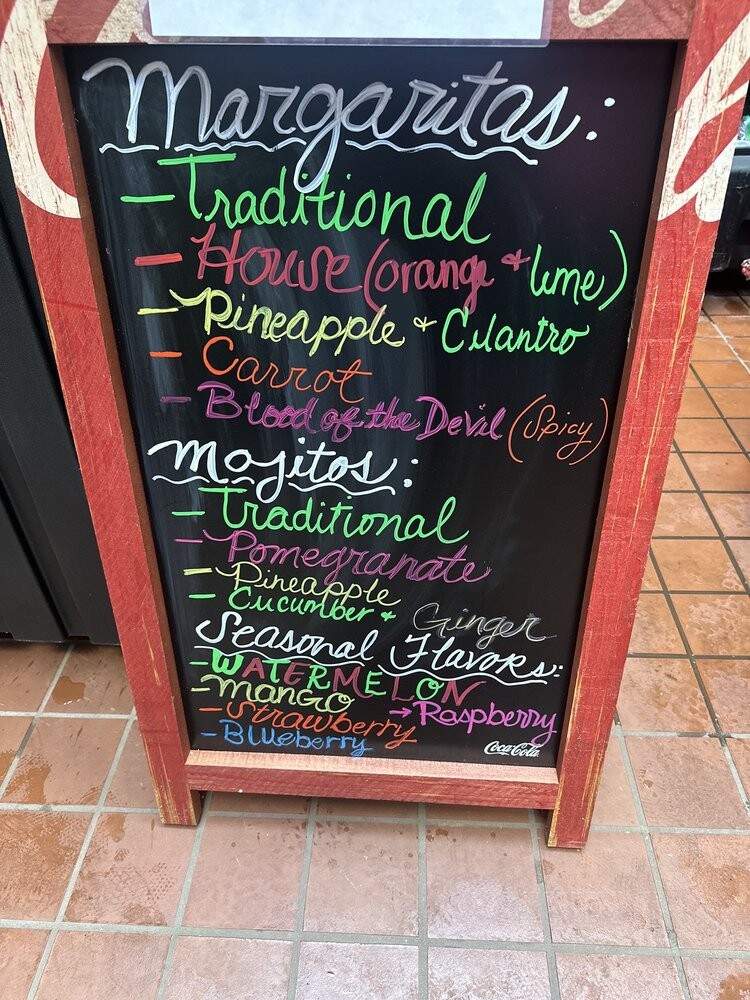 Margaritas:
- Traditional
- House (orange + lime)
- Pineapple + Cilantro
- Carrot
- Blood of the Devil (Spicy)
Mojitos:
- Traditional
- Pomegranate
- Pineapple
- Cucumber + Ginger
Seasonal Flavors:
- WATERMELON
- MANGO
- Strawberry
→ Raspberry
- Blueberry
Coca-Cola